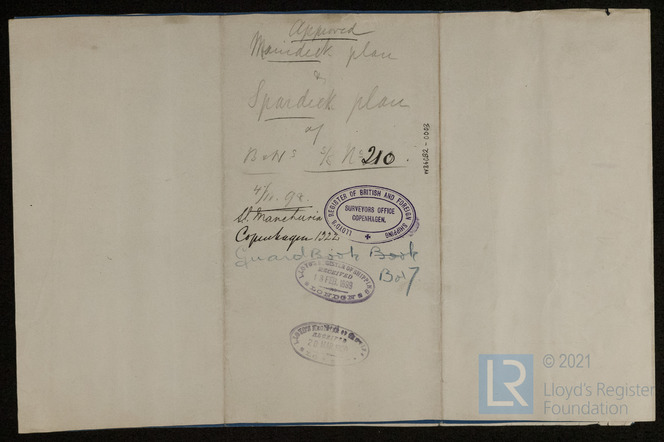 Approved
Maindeck plan
&
Spardeck plan
of
No 210.
W16082-0003
St. Manchuria
Copenhagen 1322
LLOYD'S REGISTER OF BRITISH AND FOREIGN SHIPPING
SURVEYORS OFFICE
COPENHAGEN.
Guard Book Book
Box 7
LLOYD'S REGISTER OF SHIPPING
RECEIVED
LONDON
RECEIVED
LR
© 2021
Lloyd's Register
Foundation